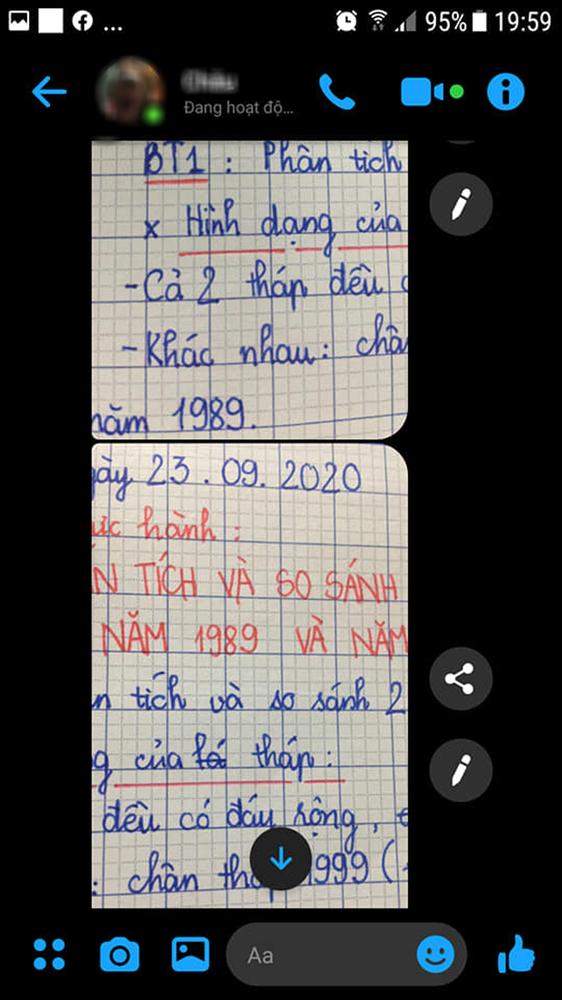 ... 95% 19:59
Đang hoạt độ...
BT1 : Phân tích
x Hình dạng của
- Cả 2 tháp đều
- Khác nhau: chân
năm 1989.
gày 23.09.2020
ực hành :
N TÍCH VÀ SO SÁNH
NĂM 1989 VÀ NĂM
n tích và so sánh 2
g của tháp :
đều có đáy rộng,
: chân 1999 (
Aa